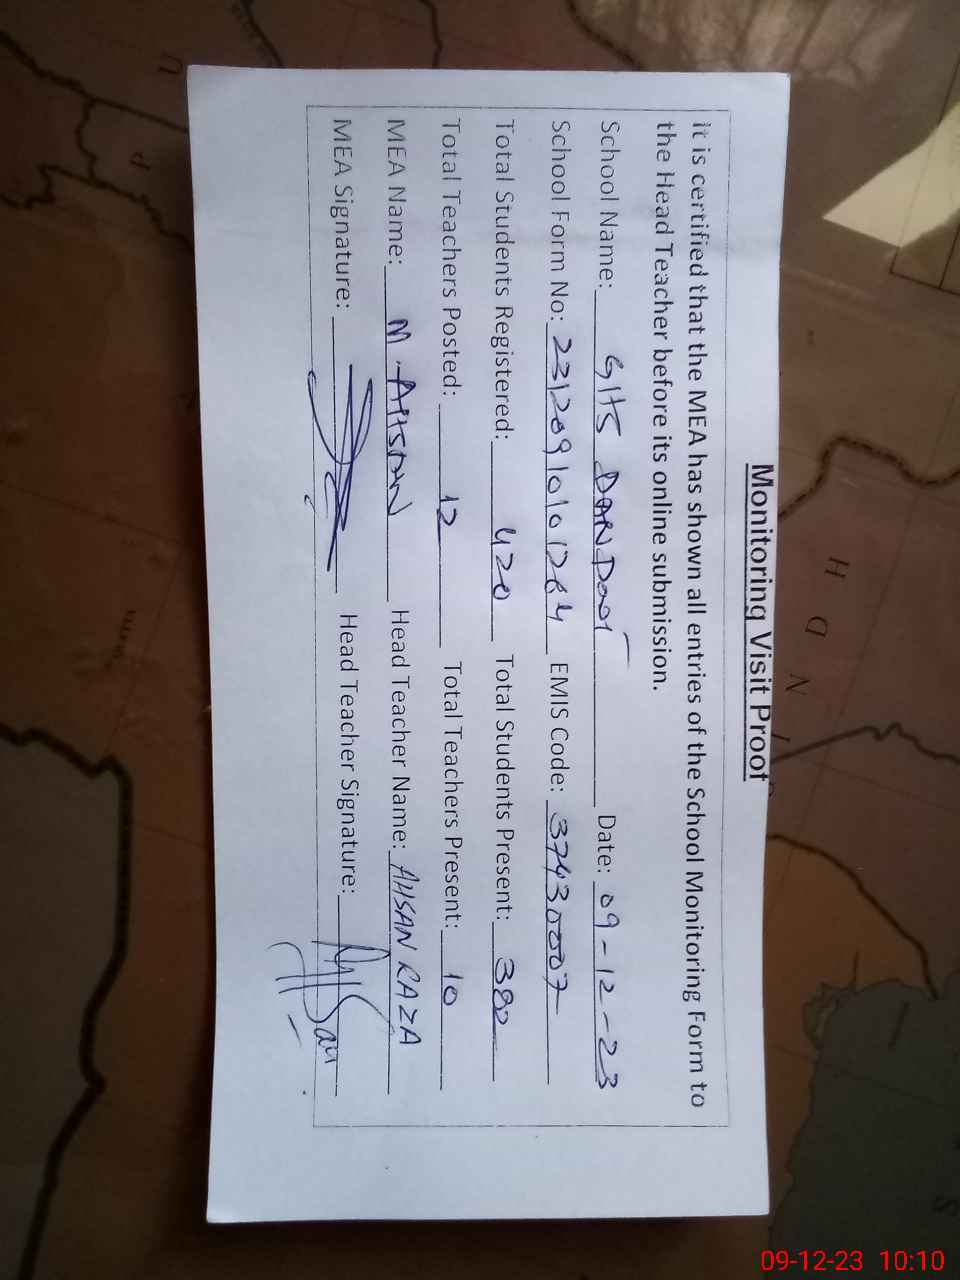 Monitoring Visit Proof
It is certified that the MEA has shown all entries of the School Monitoring Form to
the Head Teacher before its online submission.
School Name: GHS DANDOT Date: 09-12-23
School Form No: 23120910101264 EMIS Code: 37430007
Total Students Registered: 420 Total Students Present: 380
Total Teachers Posted: 12 Total Teachers Present: 10
MEA Name: M. AHSAN Head Teacher Name: AHSAN RAZA
MEA Signature: Head Teacher Signature:
09-12-23 10:10